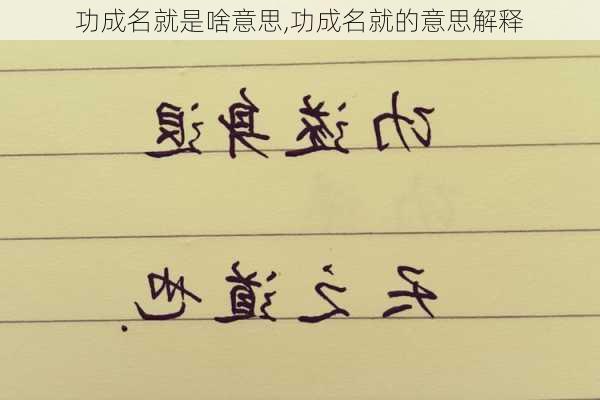 功成名就是啥意思,功成名就的意思解释
功遂身退
天之道也.